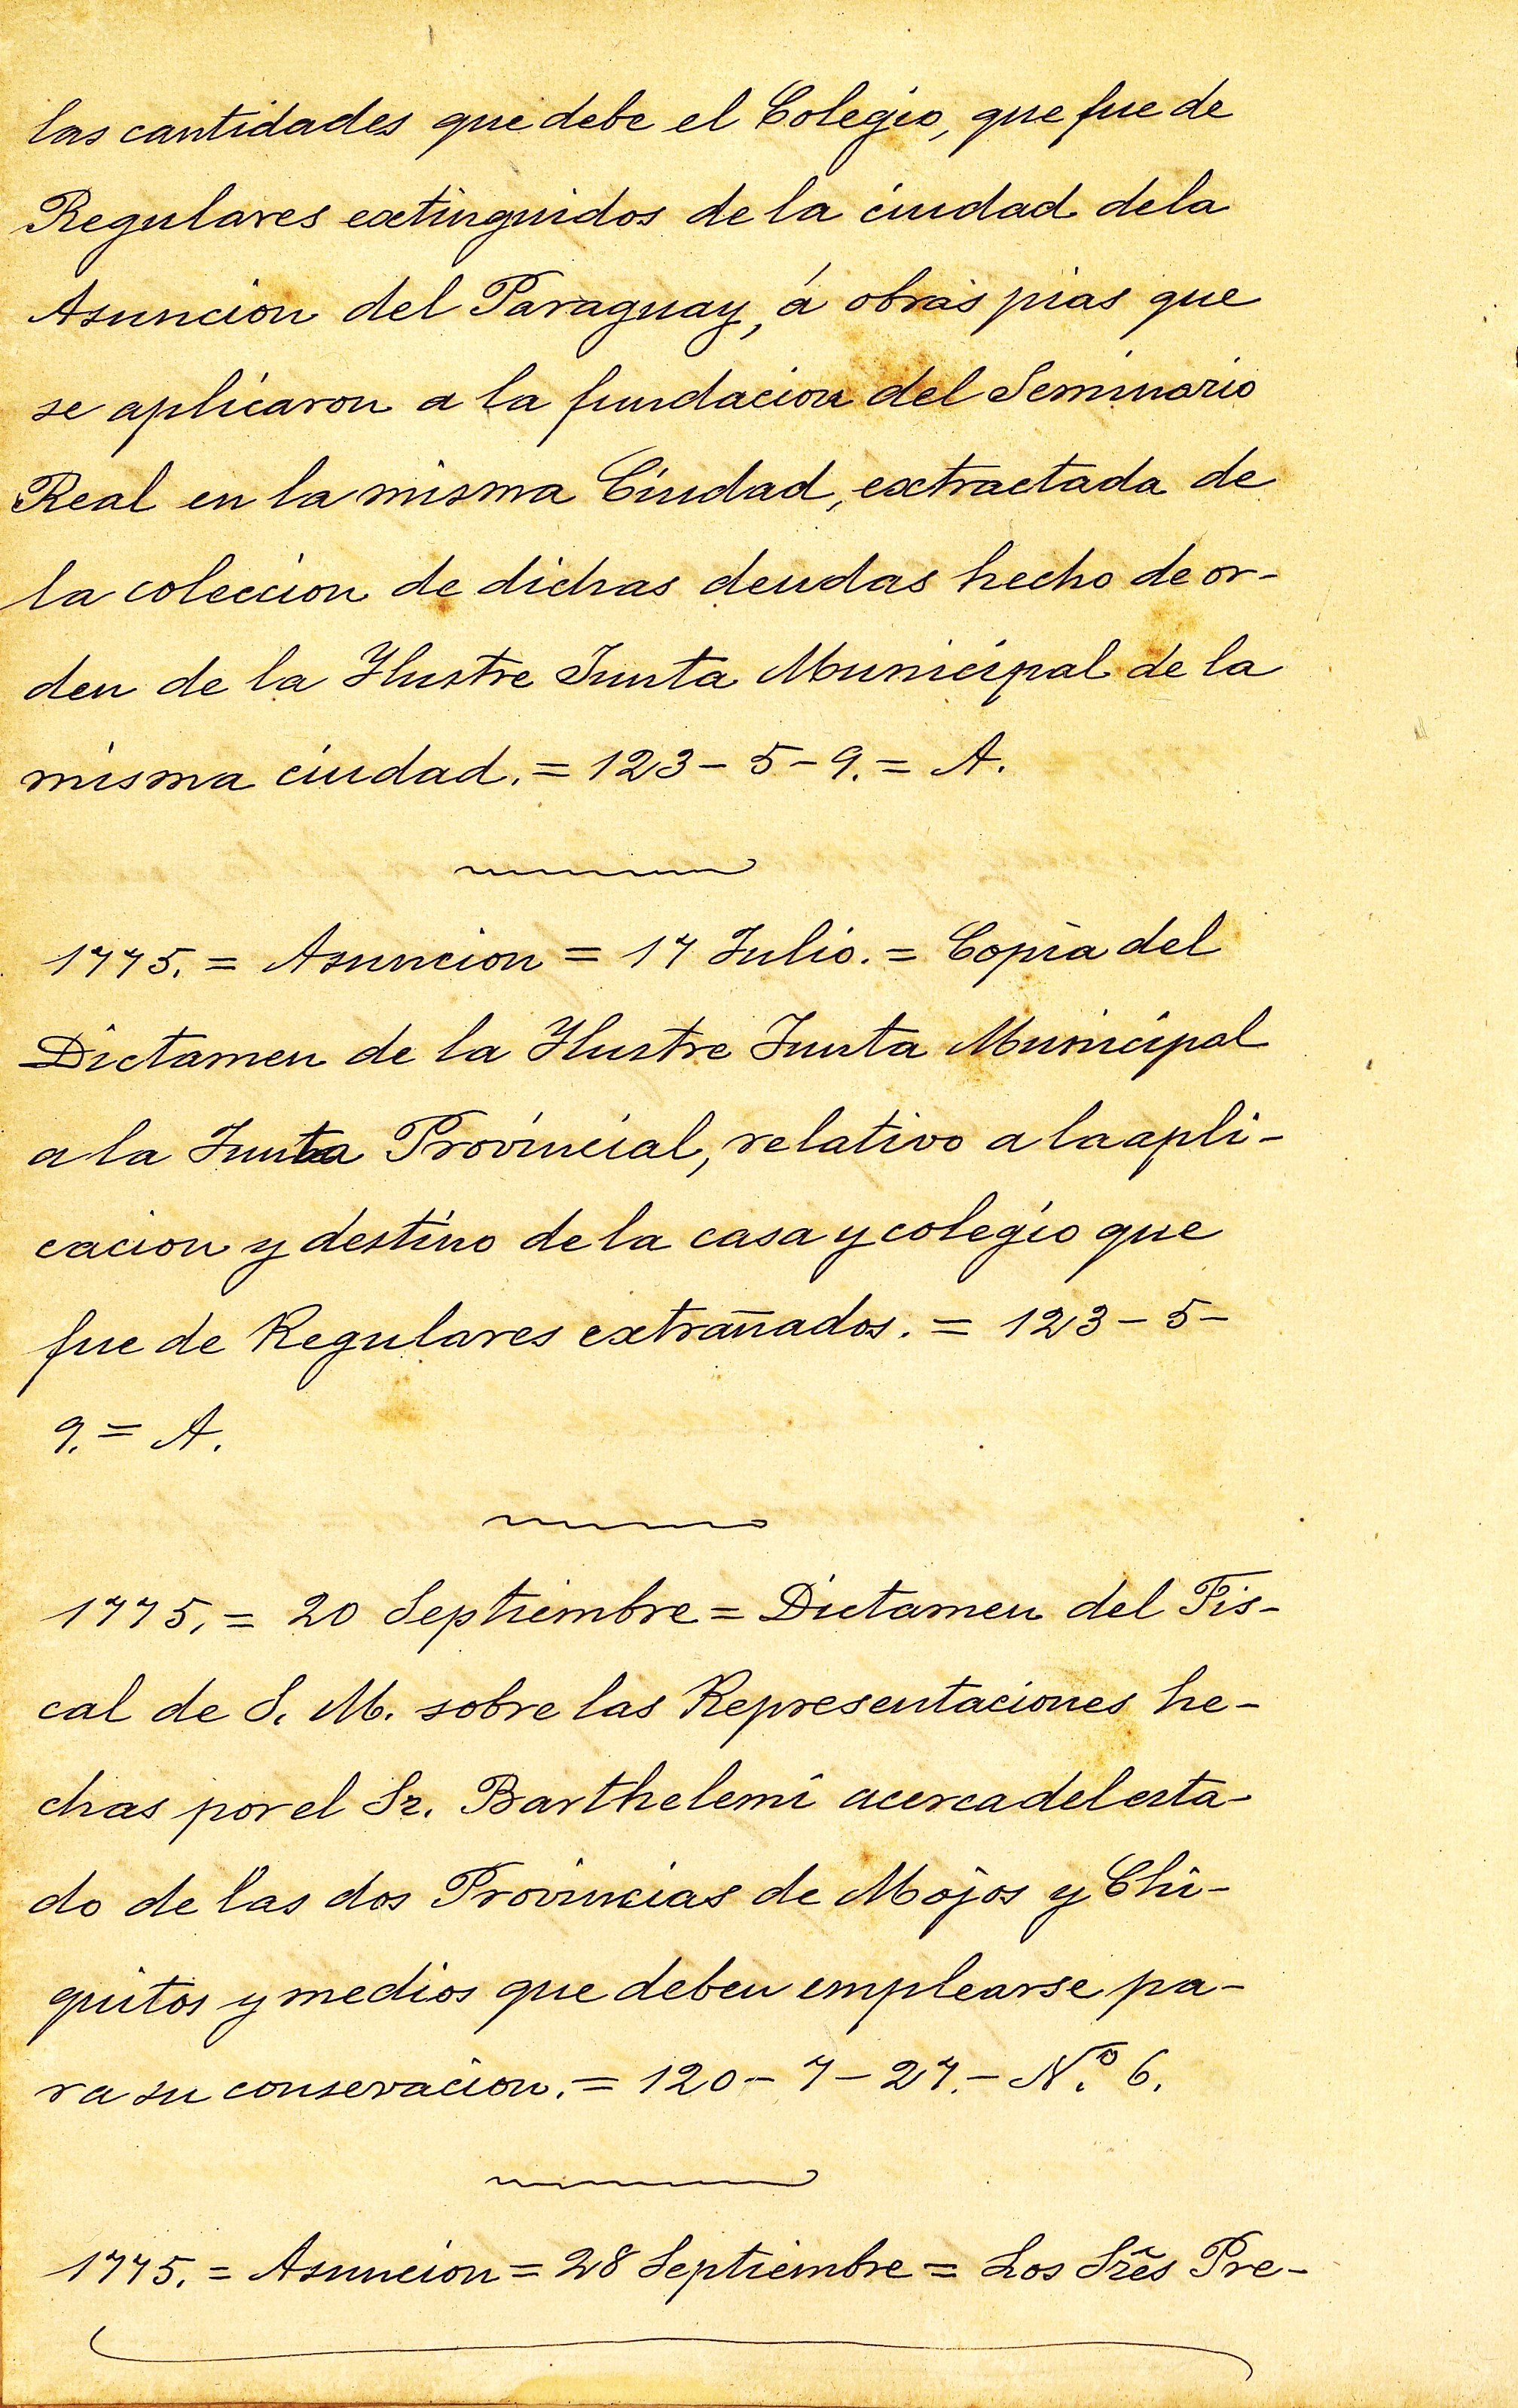 las cantidades que debe el Colegio, que fue de
Regulares extinguidos de la ciudad dela
Asuncion del Paraguay, á obras pias que
se aplicaron a la fundacion del Seminario
Real en la misma Ciudad, extractada de
la coleccion de dichas deudas hecho de or-
den de la Ylustre Junta Municipal de la
misma ciudad. = 123 - 5 - 9. = A.
1775. = Asuncion = 17 Julio. = Copia del
Dictamen de la Ylustre Junta Municipal
a la Junta Provincial, relativo a la apli-
cacion y destino de la casa y colegio que
fue de Regulares extrañados. = 123 - 5 -
9. = A.
1775. = 20 Septiembre = Dictamen del Fis-
cal de S. M. sobre las Representaciones he-
chas por el Sr. Barthelemi acerca del esta-
do de las dos Provincias de Mojos y Chi-
quitos y medios que deben emplearse pa-
ra su conservacion. = 120 - 7 - 27. - N.º 6.
1775. = Asuncion = 28 Septiembre = Los Srẽs Pre-